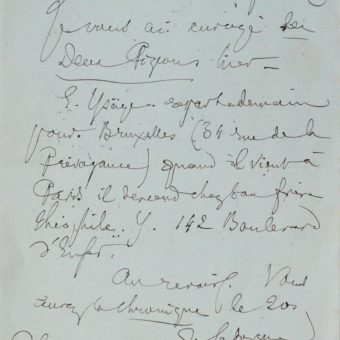 Je vous ai envoyé les
Deux Pigeons hier –
E. Ysaÿe repart demain
pour Bruxelles (34 rue de la
Prévoyance) quand il vient à
Paris il descend chez son frère
Théophile. Y. 142 Boulevard
d'Enfer.
Au revoir. Vous
aurez la chronique le 20